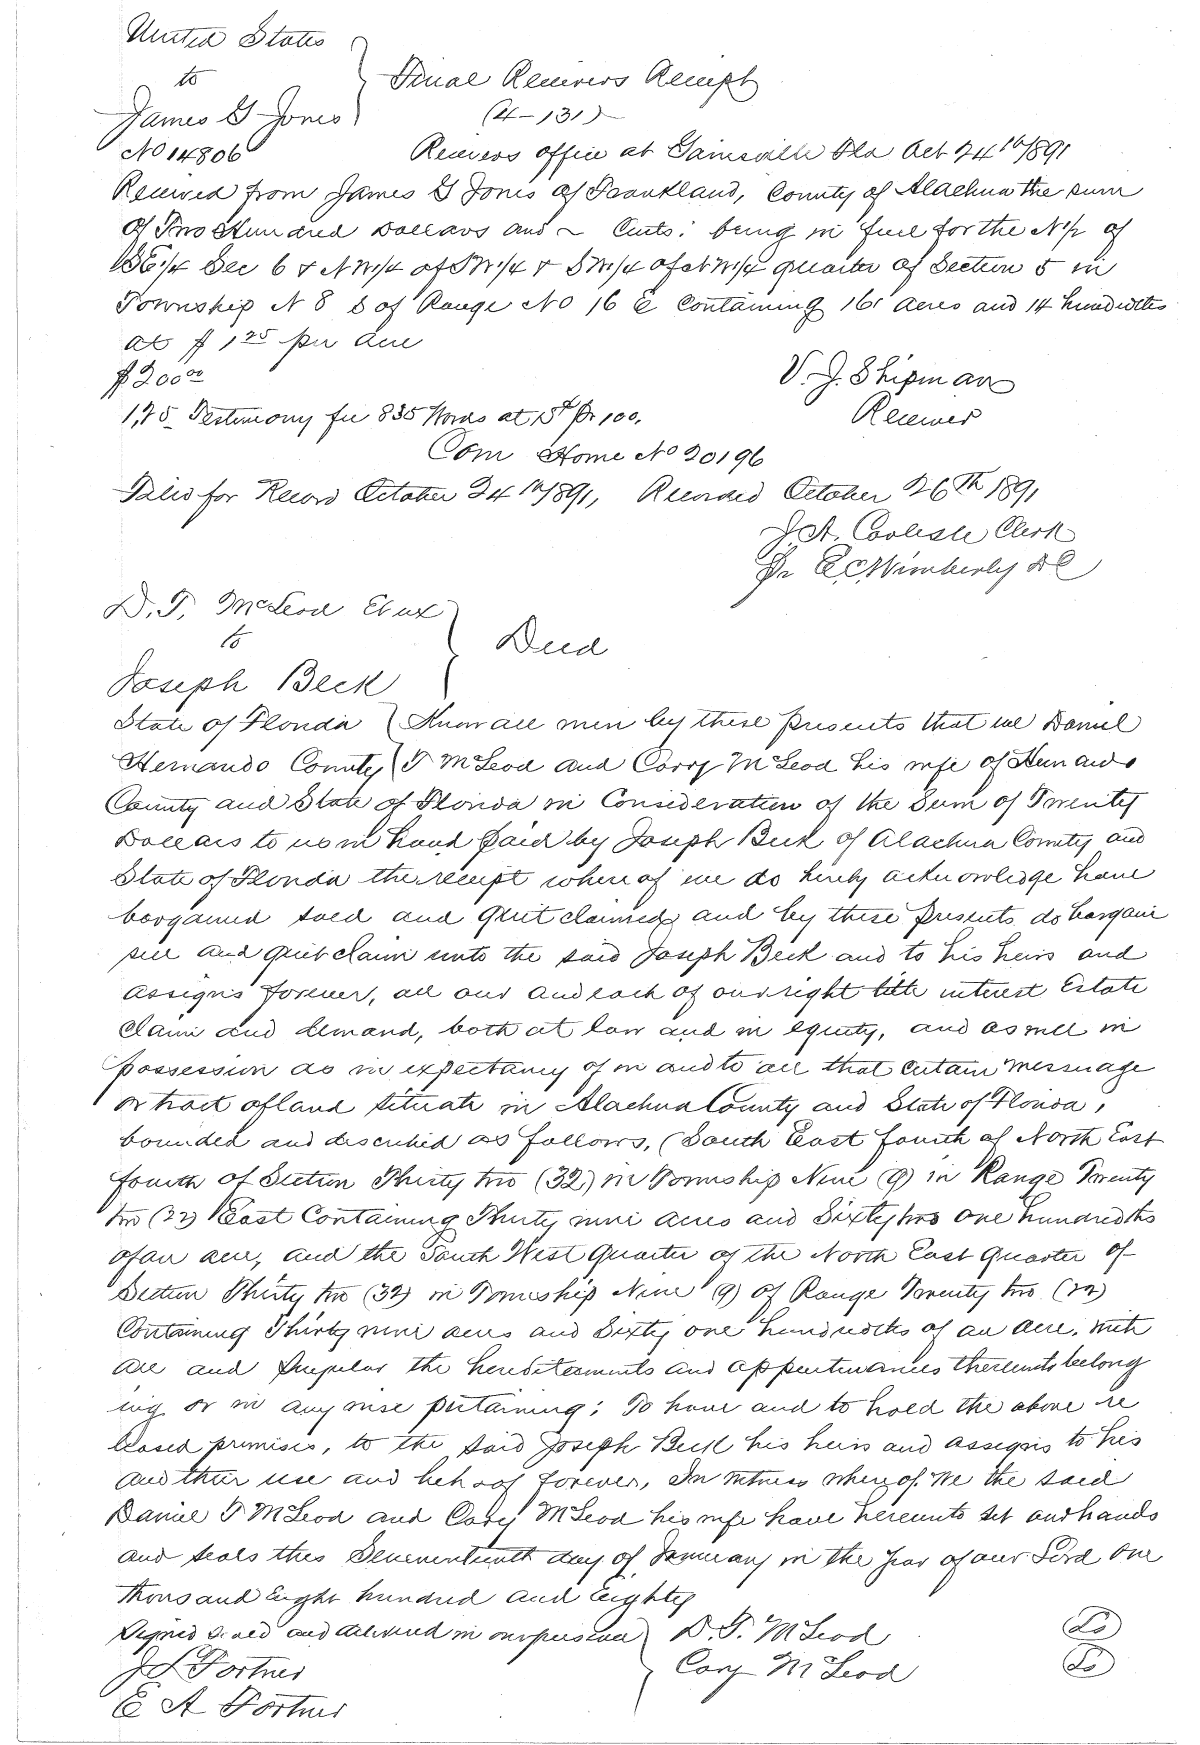 United States
to
James G Jones
Final Receivers Receipt
(4-131)
No 14806
Receivers office at Gainsville Fla Oct 24th 1891
Received from James G Jones of Frankland, County of Alachua the sum
of Two Hundred Dollars and ~ Cents; being in full for the N½ of
SE¼ Sec 6 & NW¼ of SW¼ & SW¼ of NW¼ quarter of Section 5 in
Township N 8 S of Range No 16 E Containing 161 acres and 14 hundredths
at $ 1.25 per acre
$200.00
V. J. Shipman
Receiver
1,25 Testimony fee 835 Words at 15¢ Pr 100.
Com Home No 20196
Filed for Record October 24th 1891, Recorded October 26th 1891
J. A. Carlisle Clerk
Pr E. C. Wimberly DC
D. T. McLeod Et ux
to
Joseph Beck
Deed
State of Florida Know all men by these presents that we Daniel
Hernando County T McLeod and Cary McLeod his wife of Hernando
County and State of Florida in Consideration of the Sum of Twenty
Dollars to us in hand paid by Joseph Beck of Alachua County and
State of Florida the receipt where of we do hereby acknowledge have
bargained sold and quit claimed and by these presents do bargain
sell and quit claim unto the said Joseph Beck and to his heirs and
assigns forever, all our and each of our right title interest Estate
Claim and demand, both at law and in equity, and as well in
possession as in expectancy of in and to all that certain messuage
or tract of land situate in Alachua County and State of Florida,
bounded and described as follows, (South East fourth of North East
fourth of Section Thirty two (32) in Township Nine (9) in Range Twenty
two (22) East Containing Thirty nine acres and Sixty two one hundredths
of an acre, and the South West Quarter of the North East Quarter of
Section Thirty two (32) in Township Nine (9) of Range Twenty two (22)
Containing Thirty nine acres and Sixty one hundredths of an acre. with
all and singular the hereditaments and appurtenances thereunto belong
ing or in any wise pertaining; To have and to hold the above re
leased premises, to the said Joseph Beck his heirs and assigns to his
and their use and behoof forever, In witness where of. We the said
Daniel T McLeod and Cary McLeod his wife have hereunto set our hands
and seals this Seventeenth day of January in the year of our Lord One
thousand Eight hundred and Eighty
Signed sealed and delivered in our presence
D. T. McLeod
LS
J S Fortner
Cary McLeod
LS
E A Fortner